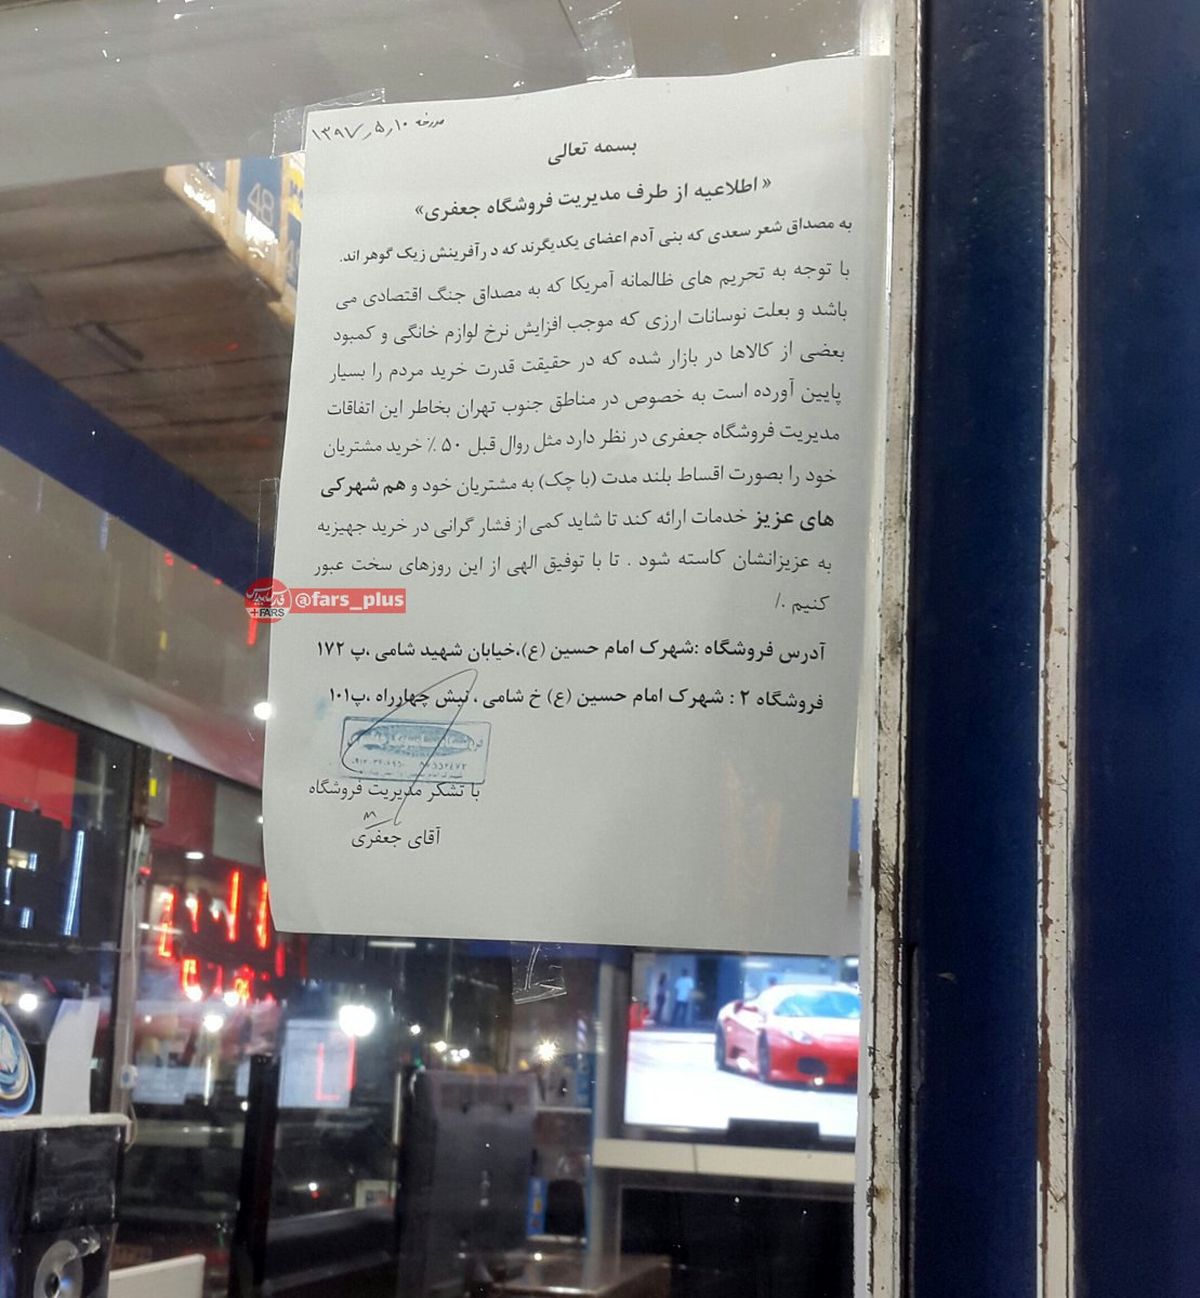 مورخه ۱۳۹۷٫۵٫۱۰
بسمه تعالی
«اطلاعیه از طرف مدیریت فروشگاه جعفری»
به مصداق شعر سعدی که بنی آدم اعضای یکدیگرند که در آفرینش زیک گوهر اند.
با توجه به تحریم های ظالمانه آمریکا که به مصداق جنگ اقتصادی می
باشد و بعلت نوسانات ارزی که موجب افزایش نرخ لوازم خانگی و کمبود
بعضی از کالاها در بازار شده که در حقیقت قدرت خرید مردم را بسیار
پایین آورده است به خصوص در مناطق جنوب تهران بخاطر این اتفاقات
مدیریت فروشگاه جعفری در نظر دارد مثل روال قبل ۵۰٪ خرید مشتریان
خود را بصورت اقساط بلند مدت (با چک) به مشتریان خود و هم شهرکی
های عزیز خدمات ارائه کند تا شاید کمی از فشار گرانی در خرید جهیزیه
به عزیزانشان کاسته شود . تا با توفیق الهی از این روزهای سخت عبور
کنیم ./
آدرس فروشگاه :شهرک امام حسین (ع)،خیابان شهید شامی ،پ ۱۷۲
فروشگاه ۲ : شهرک امام حسین (ع) خ شامی ، نبش چهارراه ،پ۱۰۱
با تشکر مدیریت فروشگاه
آقای جعفری
@fars_plus
+FARS
48